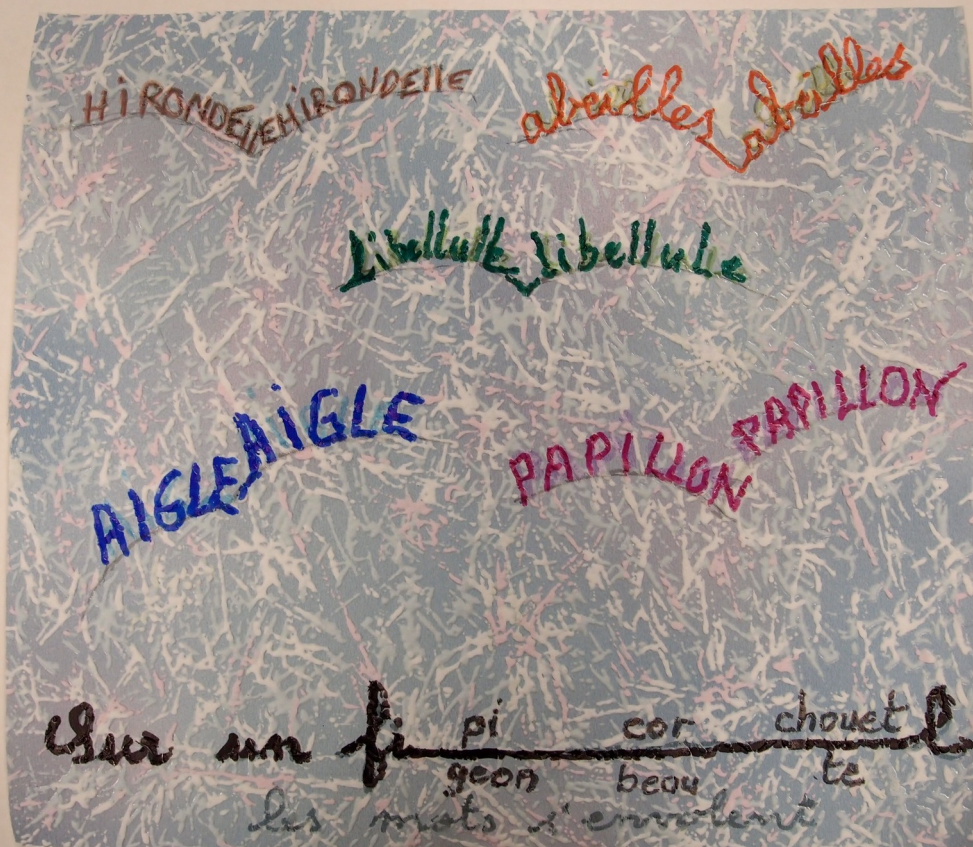 HiRONDELLE HiRONDELLE
abeilles abeilles
libellule libellule
AIGLE AiGLE
PAPILLON PAPILLON
pi cor chouet
Sur un fil
geon beau te
les mots s'envolent